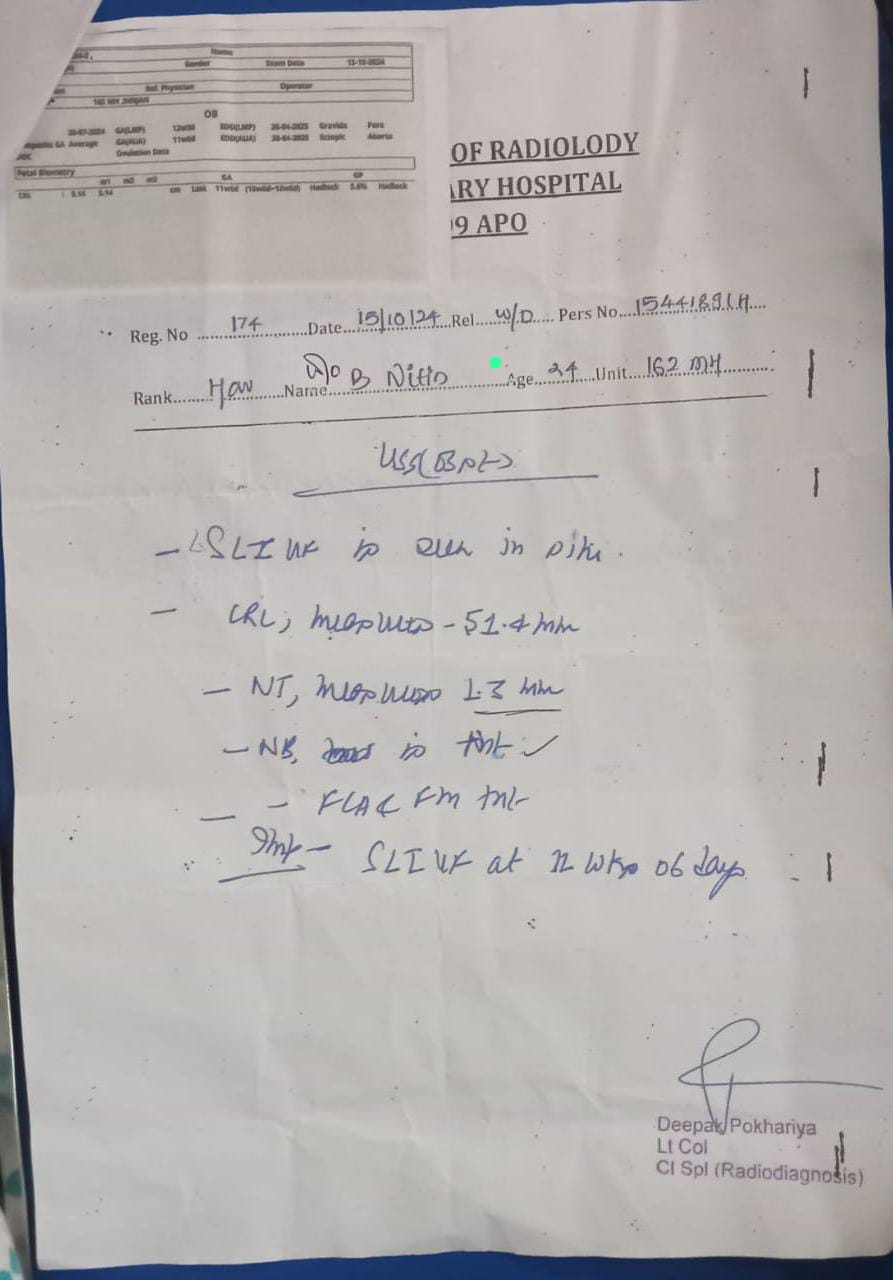 Name
Gender Exam Date 13-10-2024
Ref. Physician Operator
OB
20-07-2024 GA(LMP) 12w1d EDD(LMP) 26-04-2025 Gravida Para
GA Average GA(AUA) 11w6d EDD(AUA) Ectopic Aborta
Ovulation Date
Fetal Biometry
m1 m2 m3 GA GP
CRL : 5.14 5.14 cm Last 11w6d Hadlock 5.6% Hadlock
OF RADIOLODY
ARY HOSPITAL
9 APO
Reg. No 174 Date 15/10/24 Rel W/D Pers No
Rank Hav Name W/o B Age 24 Unit 162 MH
USS
- SLIUF is seen in situ.
- CRL, measures - 51.4 mm
- NT, measures 1.3 mm
- NB, is
- FCA & FM
Imp - SLIUF at wks 06 days
Deepak Pokhariya
Lt Col
Cl Spl (Radiodiagnosis)